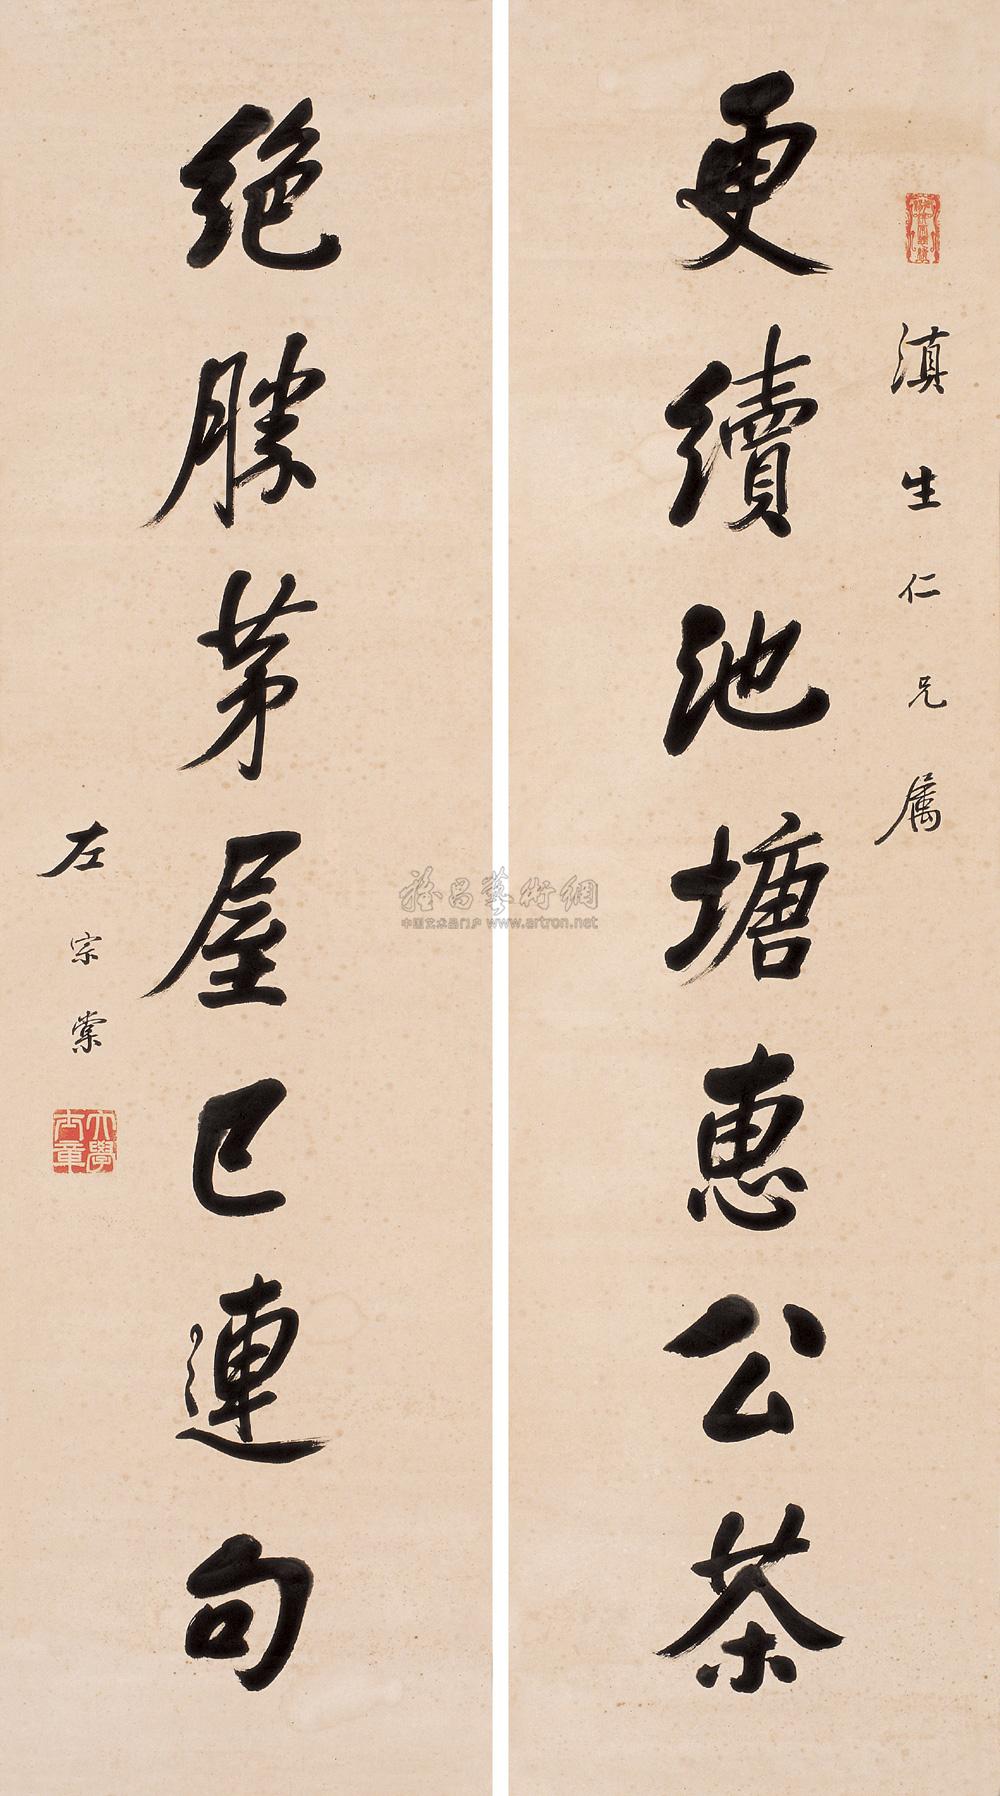 滇生仁兄属
更續池塘惠公茶
绝勝茅屋已連句
左宗棠
大學士章
雅昌藝術網
中国艺术品门户 www.artron.net